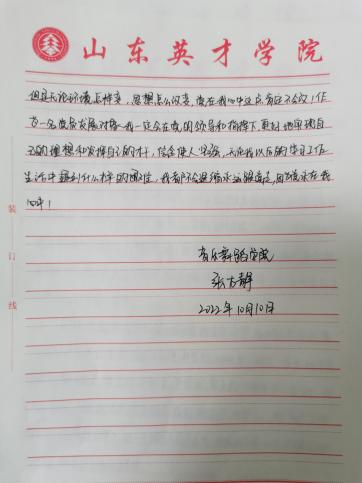 山东英才学院
但是无论环境怎样变，思想怎么改变，党在我心中这点肯定不会改！作
为一名党员发展对象我一定会在党的领导和指挥下，更好地实现自
己的理想和发挥自己的才，信念使人坚强，无论我以后的学习工作
生活中遇到什么样的困难，我都不会退缩永远跟党走，因为党永在我
心中！
音乐舞蹈学院
张方静
2022年10月10日
装
订
线